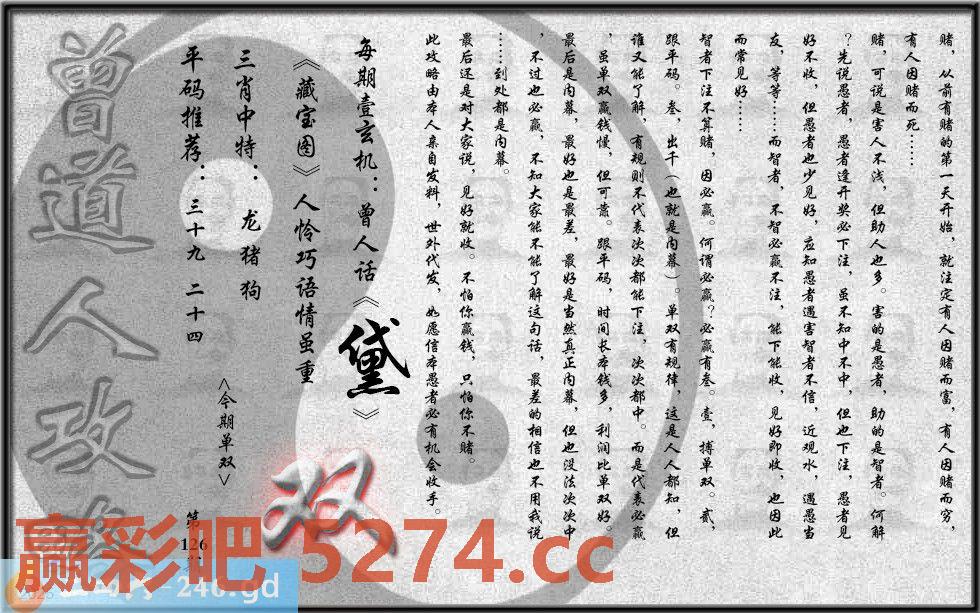 赌，从前有赌的第一天开始，就注定有人因赌而富，有人因赌而穷，
有人因赌而死……
赌，可说是害人不浅，但助人也多。害的是愚者，助的是智者。何解
？先说愚者，愚者逢开奖必下注，虽不知中不中，但也下注，愚者见
好不收，但愚者也少见好，应知愚者遇害智者不信，近观水，遇愚当
友，等等……而智者，不智必赢不注，能下能收，见好即收，也因此
而常见好……
智者下注不算赌，因必赢。何谓必赢？必赢有叁。壹，搏单双。贰，
跟平码。叁，出千（也就是内幕）。单双有规律，这是人人都知，但
谁又能了解，有规则不代表次次都能下注，次次都中。而是代表必赢
，虽单双赢钱慢，但可靠。跟平码，时间长本钱多，利润比单双好。
最后是内幕，最好也是最差，最好是当然真正内幕，但也没法次次中
，不过也必赢，不知大家能不能了解这句话，最差的相信也不用我说
……到处都是内幕。
最后还是对大家说，见好就收。不怕你赢钱，只怕你不赌。
此攻略由本人亲自发料，世外代发，如愿信本愚者必有机会收手。
每期壹玄机：曾人话《黛》
《藏宝图》人怜巧语情虽重
三肖中特：龙猪狗
平码推荐：三十九 二十四
<今期单双>
双
第126
曾道人攻
赢彩吧 5274.cc
-246.gd